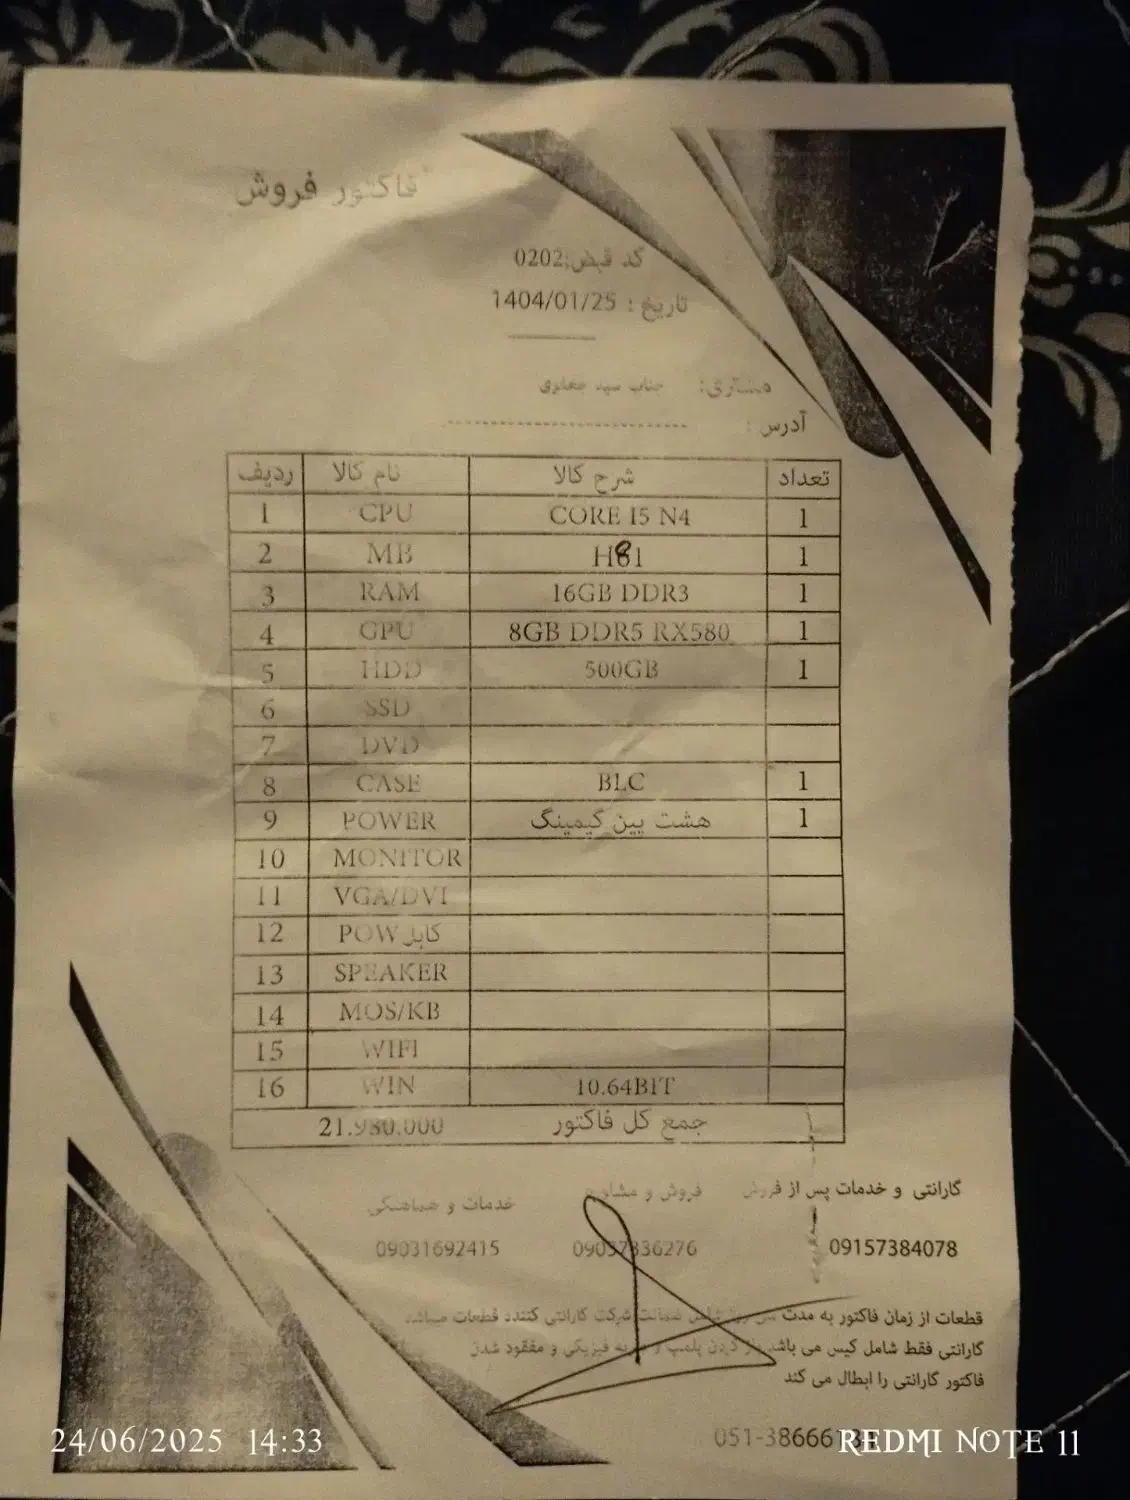 فاکتور فروش
کد قبض:0202
تاریخ : 1404/01/25
مشتری: جناب سید جعفری
آدرس :
ردیف نام کالا شرح کالا تعداد
1 CPU CORE I5 N4 1
2 MB H81 1
3 RAM 16GB DDR3 1
4 GPU 8GB DDR5 RX580 1
5 HDD 500GB 1
6 SSD
7 DVD
8 CASE BLC 1
9 POWER هشت پین گیمینگ 1
10 MONITOR
11 VGA/DVI
12 POW کابل
13 SPEAKER
14 MOS/KB
15 WIFI
16 WIN 10.64BIT
جمع کل فاکتور 21.980.000
گارانتی و خدمات پس از فروش فروش و مشاوره خدمات و هماهنگی
09157384078 09037336276 09031692415
قطعات از زمان فاکتور به مدت ضمانت شرکت گارانتی کننده قطعات میباشد
گارانتی فقط شامل کیس می باشد باز کردن پلمپ و فیزیکی و مفقود شدن
فاکتور گارانتی را ابطال می کند
24/06/2025 14:33
REDMI NOTE 11